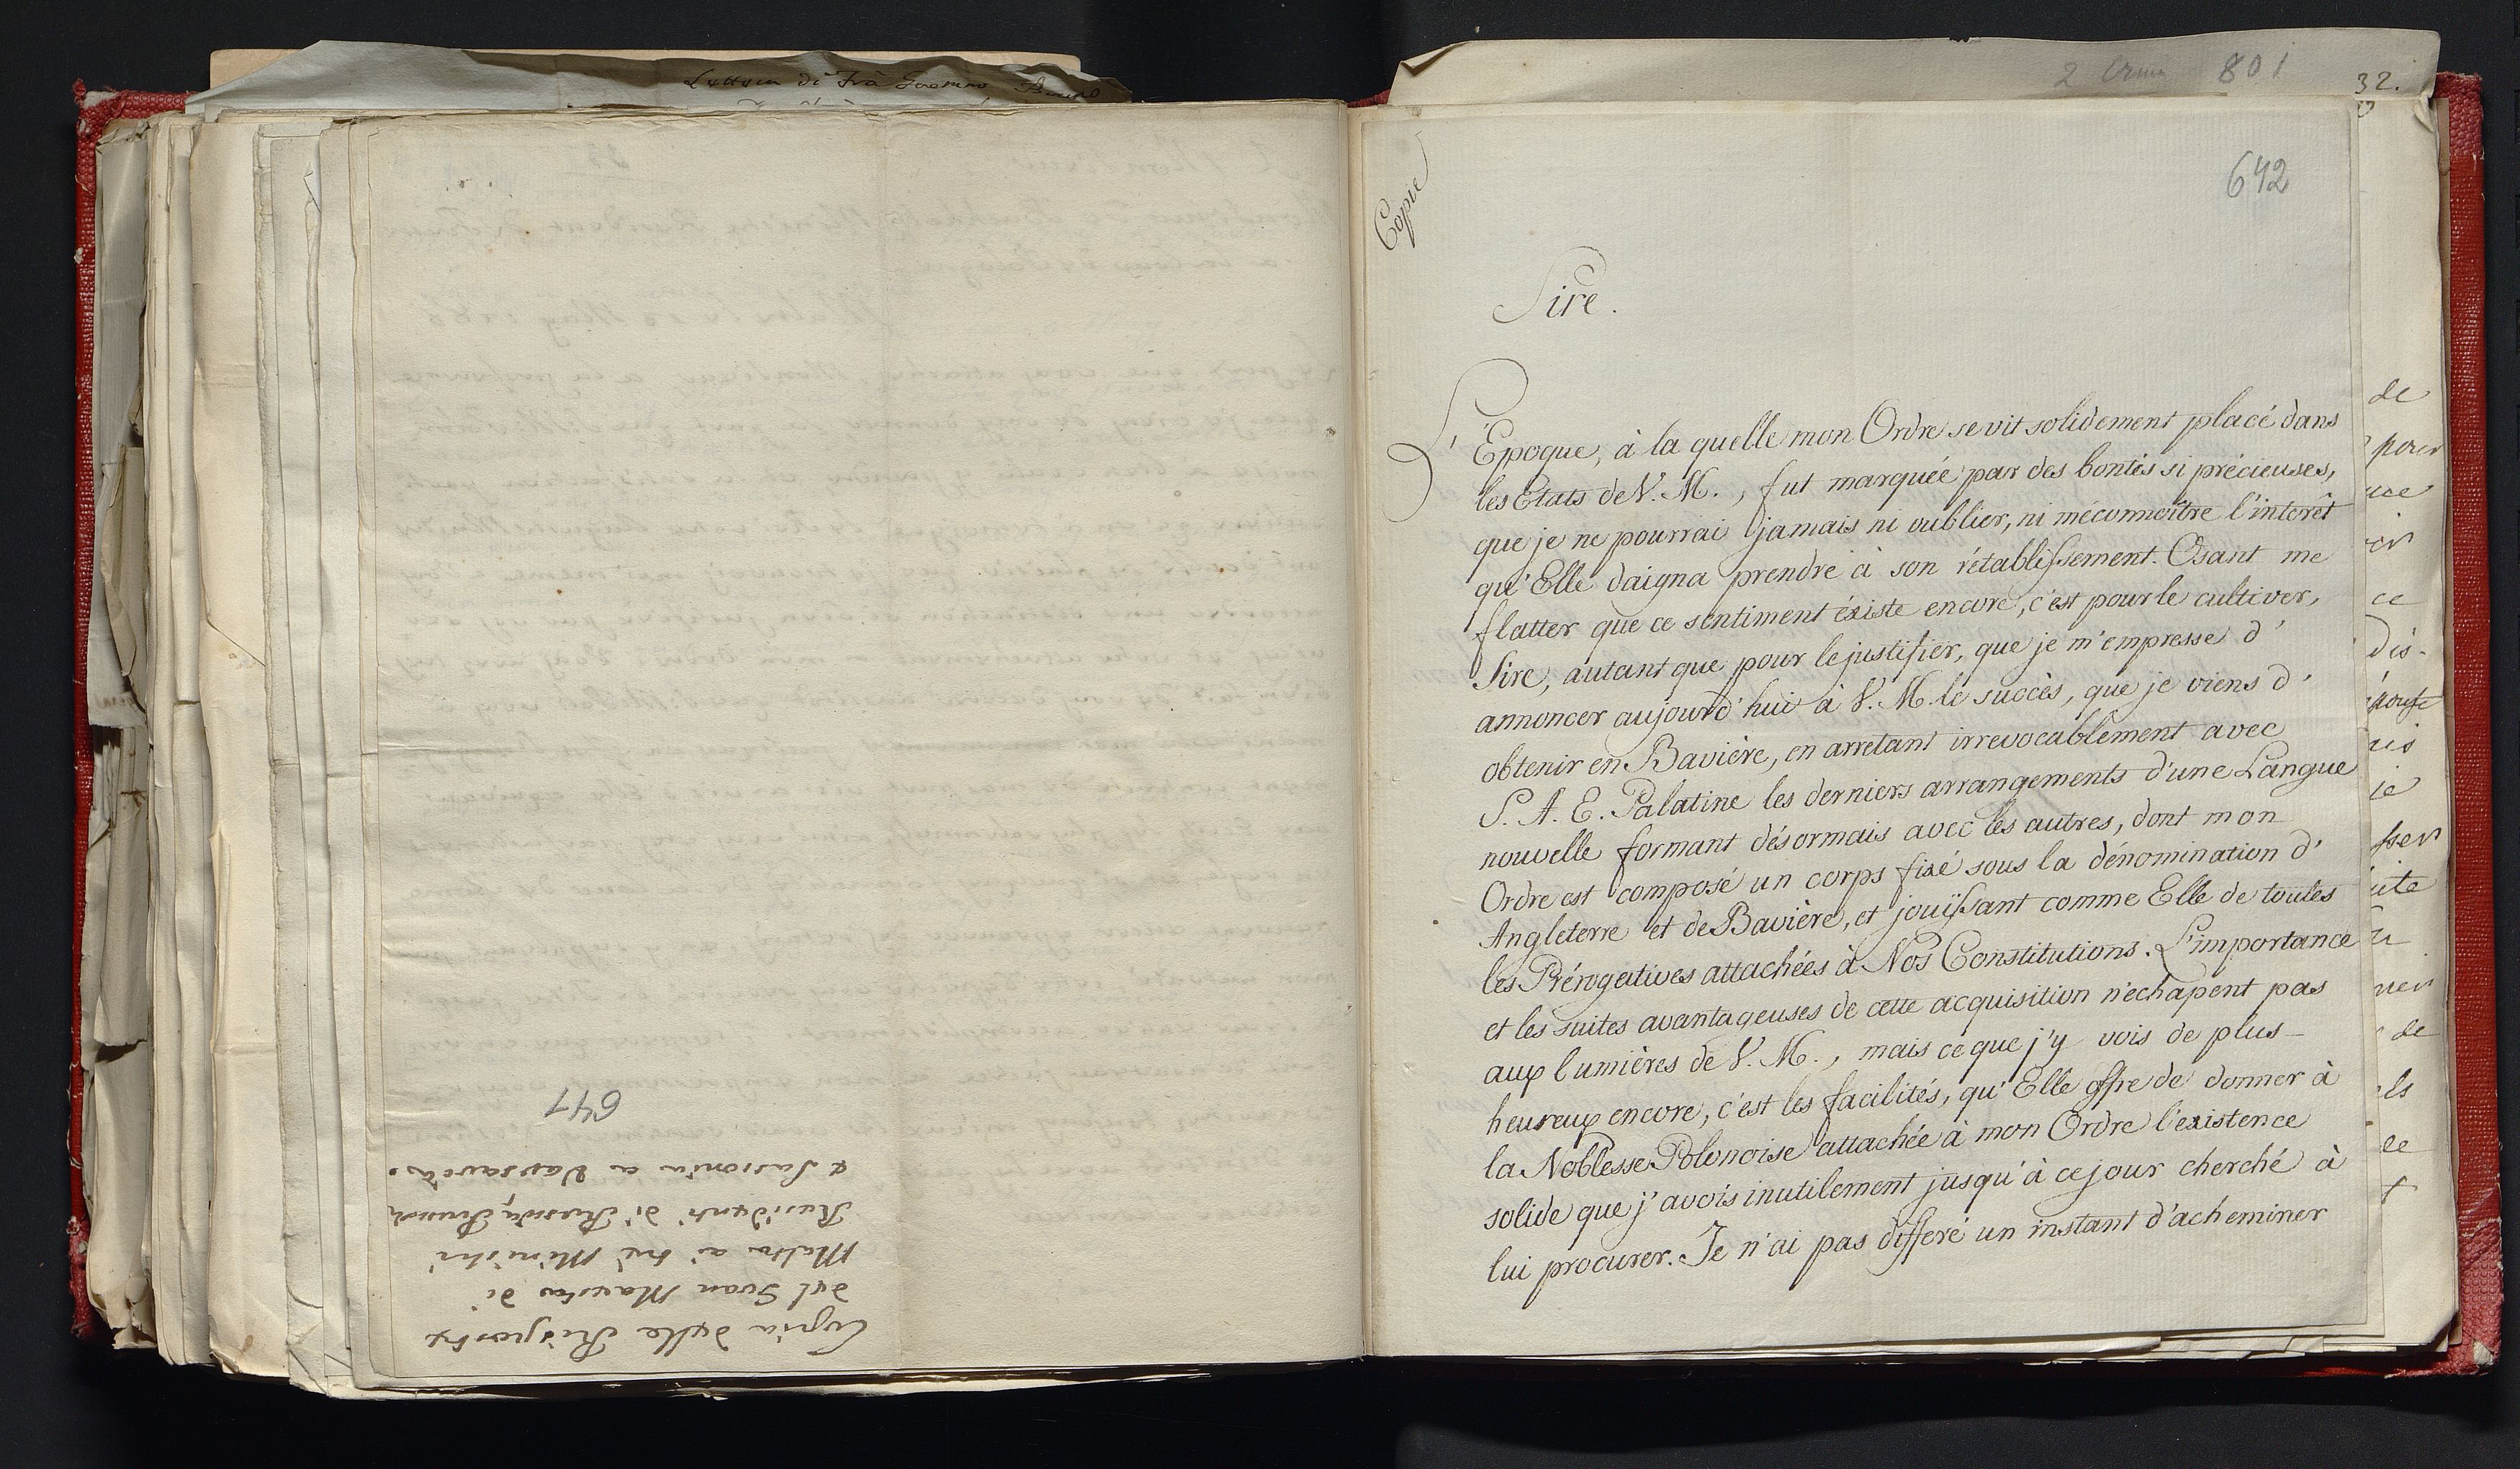 Lettera di frà
641
Copia delle Risposte
del Gran Maestro di
Malta ai tre Ministri
Residenti di Russia, Prussia
e Sassonia a Varsavia.
2 801
32.
642
Copie
Sire.
L'Époque, à la quelle mon Ordre se vit solidement placé dans
les Etats de V. M., fut marquée par des bontés si précieuses,
que je ne pourrai jamais ni oublier, ni méconnoître l'intérêt
qu'Elle daigna prendre à son rétablissement. Osant me
flatter que ce sentiment éxiste encore, c'est pour le cultiver,
Sire, autant que pour le justifier, que je m'empresse d'
annoncer aujourd'hui à V. M. le succès, que je viens d'
obtenir en Bavière, en arretant irrevocablement avec
S. A. E. Palatine les derniers arrangements d'une Langue
nouvelle formant désormais avec les autres, dont mon
Ordre est composé un corps fixé sous la dénomination d'
Angleterre et de Bavière, et jouissant comme Elle de toutes
les Prérogatives attachées à Nos Constitutions. L'importance
et les suites avantageuses de cette acquisition n'échapent pas
aux lumières de V. M., mais ce que j'y vois de plus
heureux encore, c'est les facilités, qu'Elle offre de donner à
la Noblesse Polonoise attachée à mon Ordre l'existence
solide que j'avois inutilement jusqu'à ce jour cherché à
lui procurer. Je n'ai pas différé un instant d'acheminer
de
pour
ce
dis-
je
de